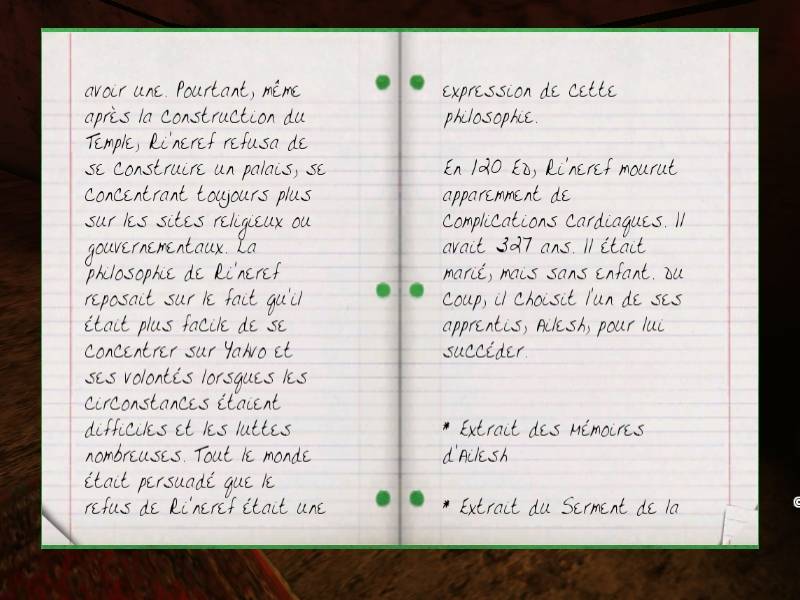 avoir une. Pourtant, même
après la construction du
Temple, Ri'neref refusa de
se construire un palais, se
concentrant toujours plus
sur les sites religieux ou
gouvernementaux. La
philosophie de Ri'neref
reposait sur le fait qu'il
était plus facile de se
concentrer sur Yahvo et
ses volontés lorsques les
circonstances étaient
difficiles et les luttes
nombreuses. Tout le monde
était persuadé que le
refus de Ri'neref était une
expression de cette
philosophie.
En 120 ED, Ri'neref mourut
apparemment de
complications cardiaques. Il
avait 327 ans. Il était
marié, mais sans enfant. Du
coup, il choisit l'un de ses
apprentis, Ailesh, pour lui
succéder.
* Extrait des Mémoires
d'Ailesh
* Extrait du Serment de la
©